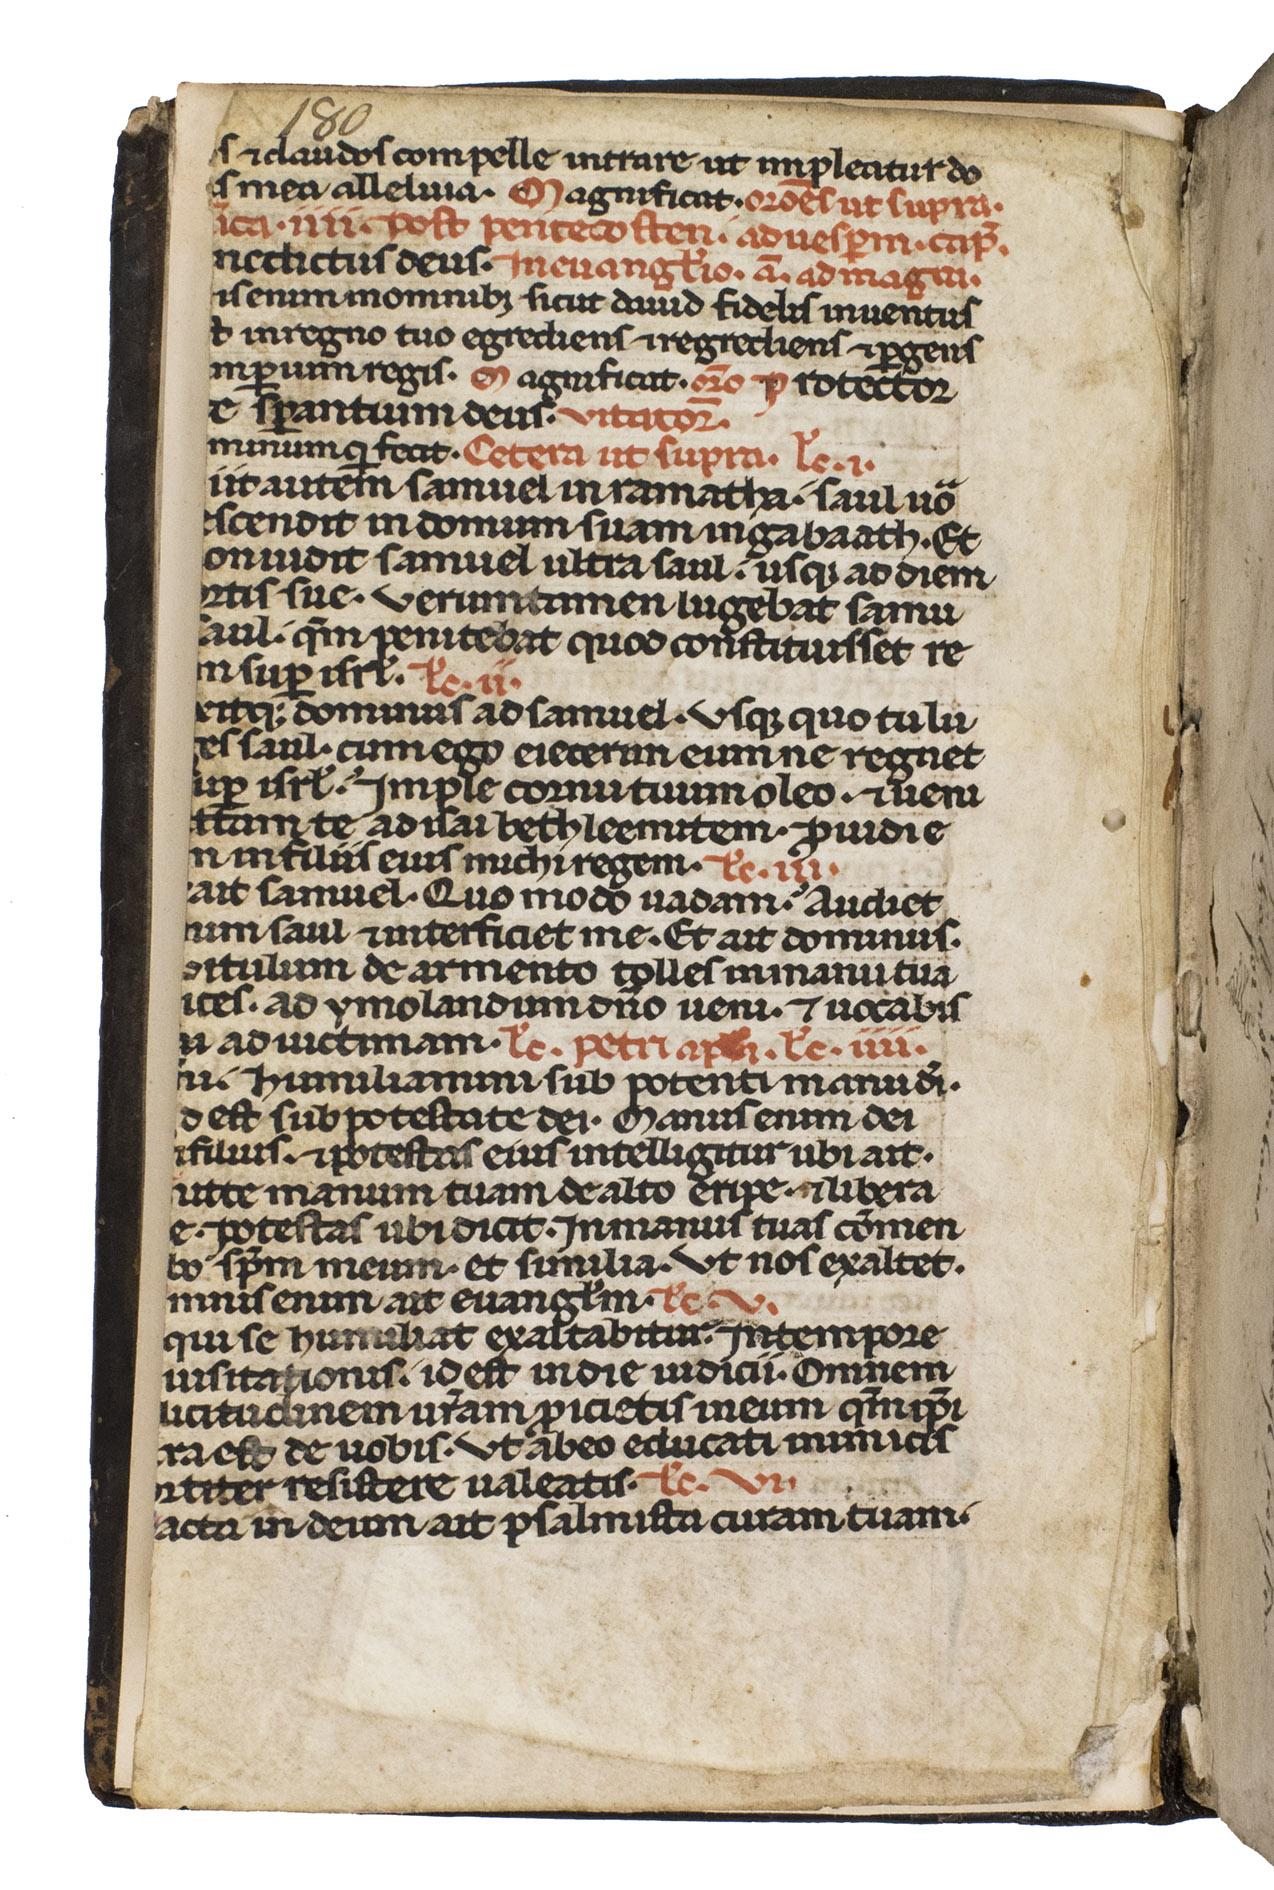 180
s ⁊ claudos compelle intrare ut impleatur do
s mea alleluia. Magnificat. oroẽs ut supra.
ica. iiii. post pentecosten. ad uesꝑm. cap̃.
nedictus deus. In euangl̃io. añ. ad magni.
is enim in omnibꝫ sicut dauid fidelis inuentus
t̃ in regno tuo egrediens ⁊ regrediens ⁊ ꝑgens
imꝑium regis. Magnificat. or̃o Protector
e sꝑantium deus. Vitator̃.
minumq̢ fecit. Cetera ut supra. l̃c. i.
iit autem samuel in ramatha. saul uo̊
escendit in domum suam in gabaath. Et
on uidit samuel ultra saul. usqꝫ ad diem
ortis sue. Veruntamen lugebat samu
saul. qm̃ penitebat quod constituisset re
m suꝑ isrl̃. l̃c. ii.
xitqꝫ dominus ad samuel. Usqꝫ quo tu lu
ges saul. cum ego eiecerim eum ne regnet
suꝑ isrl̃. Imple cornu tuum oleo. ⁊ ueni
ittam te ad isai bethleemitem. ꝓuidi e
m in filiis eius michi regem. l̃c. iii.
ait samuel. Quo modo uadam. Audiet
nim saul ⁊ interficiet me. Et ait dominus.
uitulum de armento tolles in manu tua
ices. ad ymolandum dño ueni. ⁊ uocabis
i ad uictimam. l̃c. petri apl̃i. l̃c. iiii.
mi. humiliamini sub potenti manu dĩ.
id est sub potestate dei. Manus enim dei
filius. ⁊ potestas eius intelligitur ubi ait.
itte manum tuam de alto eripe. ⁊ libera
e. potestas ubi dicit. In manus tuas cõmen
bo sp̃m meum. et similia. Ut nos exaltet.
mnis enim ait euangl̃m. l̃c. v.
qui se humiliat exaltabitur. In tempore
uisitationis. id est in die iudicii. Omnem
licitudinem ur̃am ꝓicietis in eum qm̃ ip̃i
ra est de uobis. Ut ab eo educati inimicis
ortiter resistere ualeatis. l̃c. vi.
acta in deum ait psalmista curam tuam.